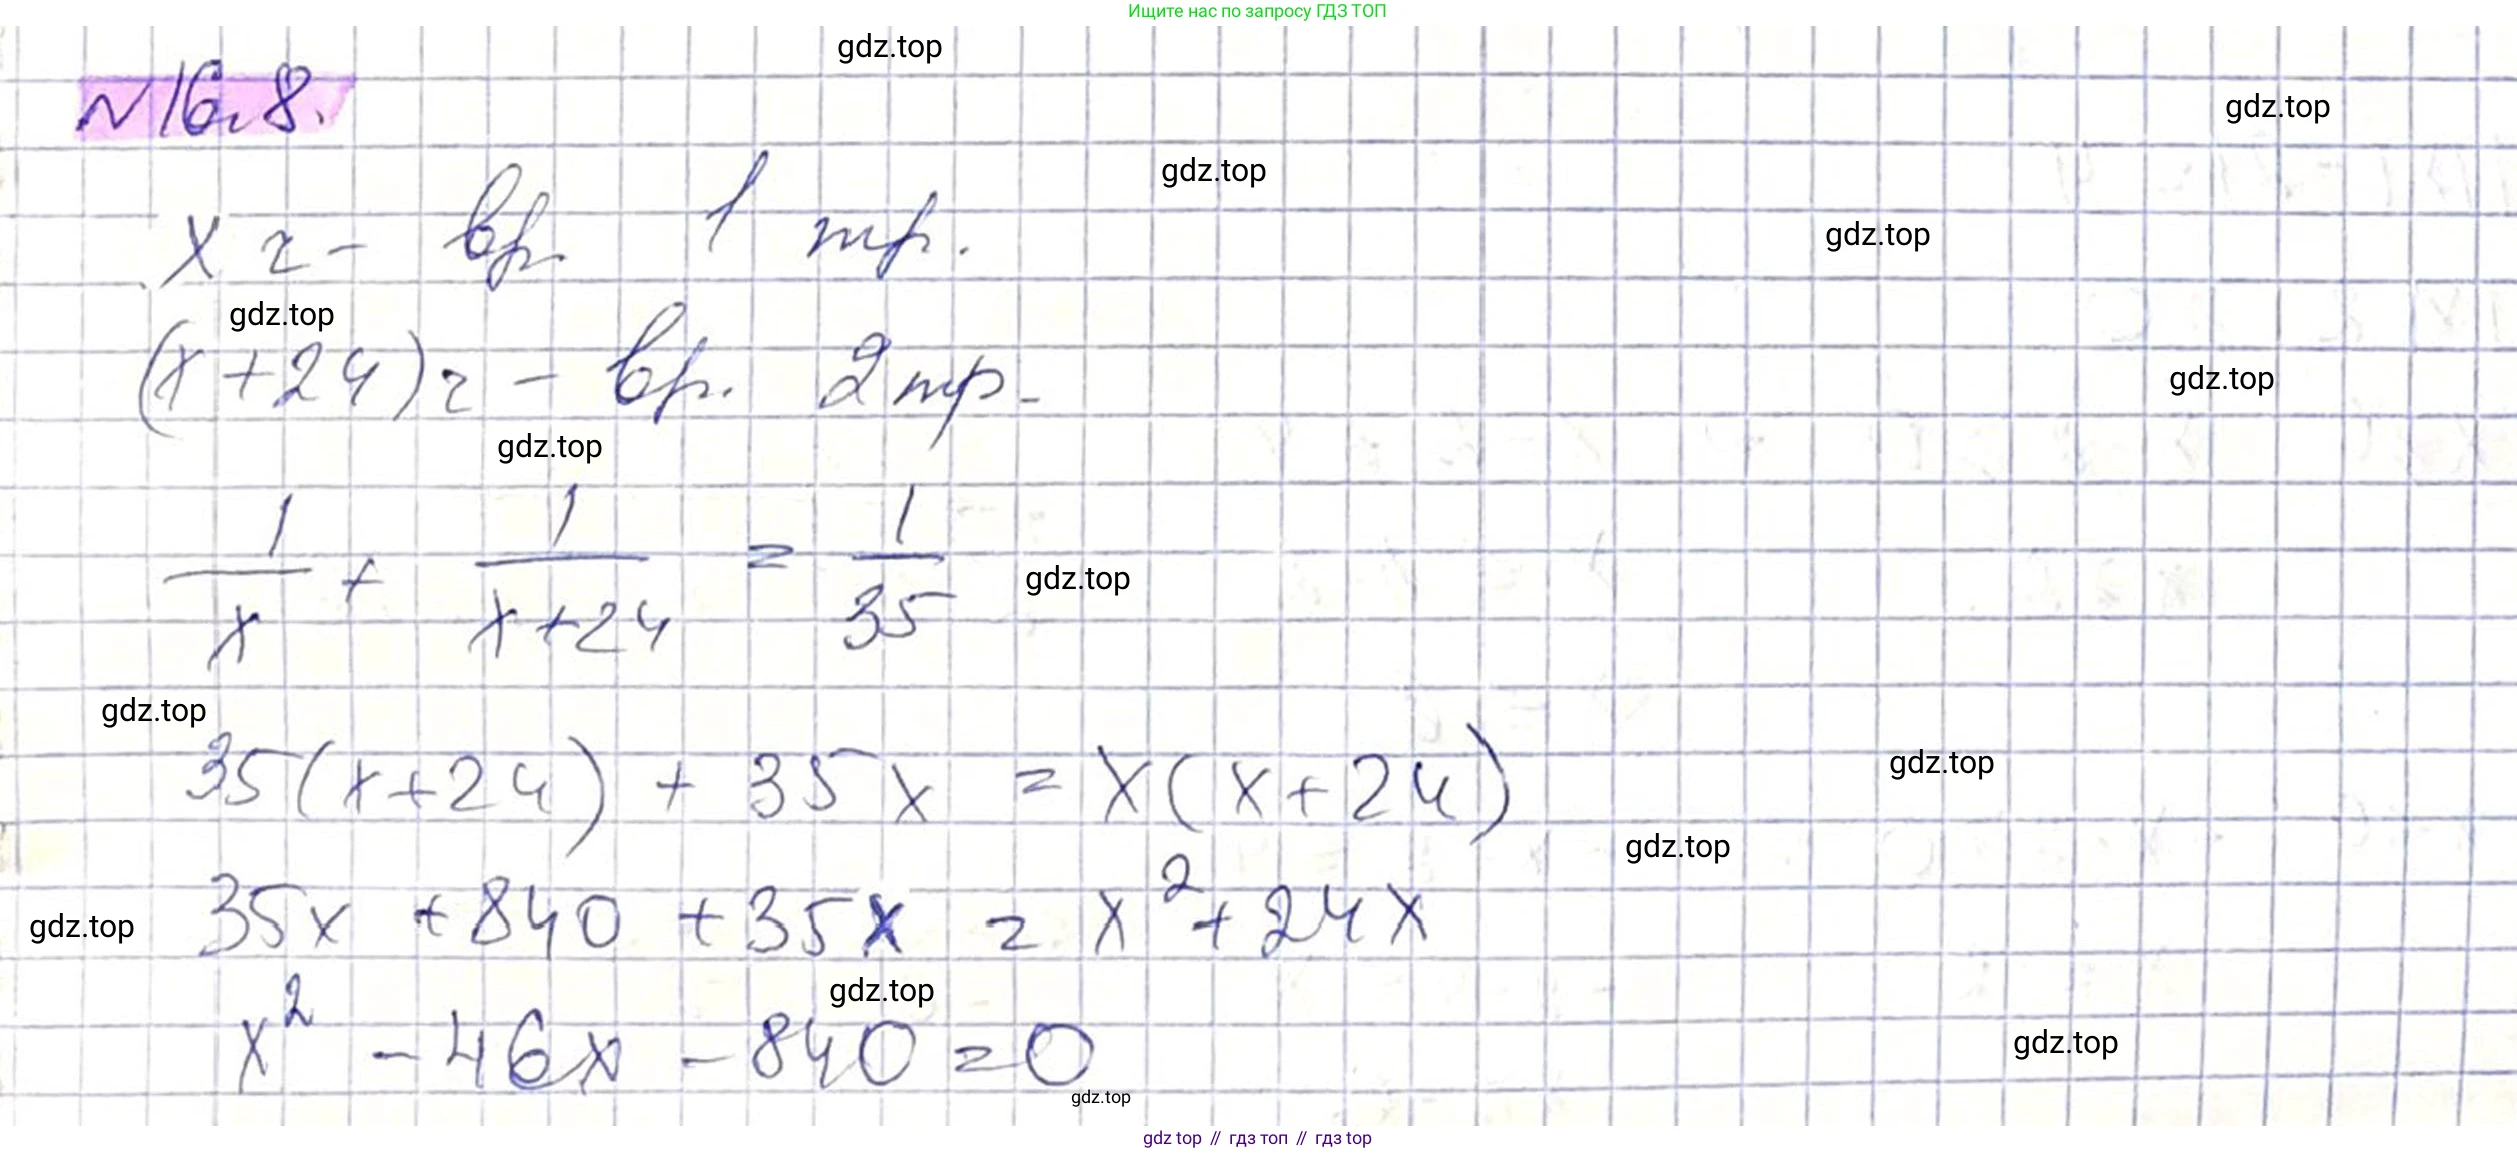 Ищите нас по запросу ГДЗ ТОП
gdz.top
№ 16.8.
gdz.top
gdz.top
x ч - вр. 1 тр.
gdz.top
gdz.top
(x + 24) ч - вр. 2 тр.
gdz.top
gdz.top
1/x + 1/(x+24) = 1/35
gdz.top
gdz.top
35(x+24) + 35x = x(x+24)
gdz.top
gdz.top
35x + 840 + 35x = x² + 24x
gdz.top
gdz.top
x² - 46x - 840 = 0
gdz.top
gdz.top
gdz top // гдз топ // гдз top